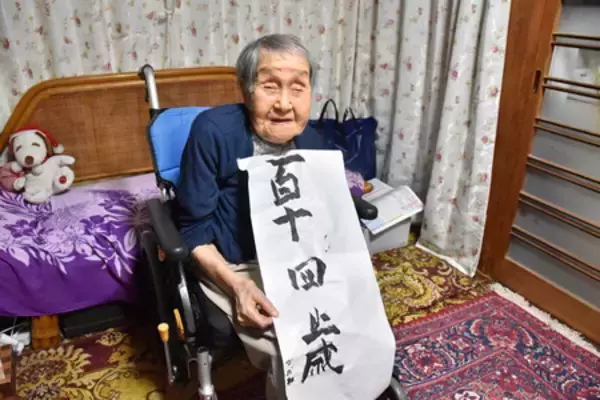 百十四歳